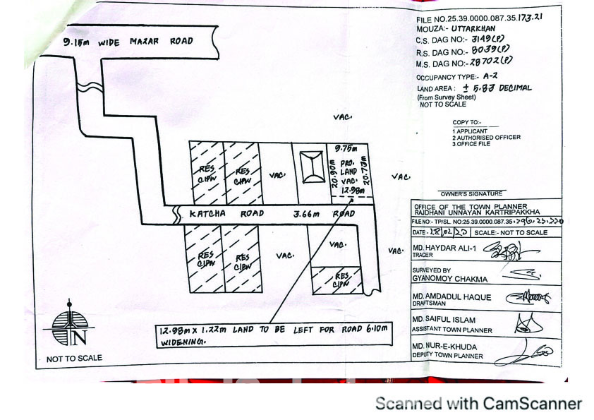 9.15m WIDE MAZAR ROAD
VAC.
RES
C.I.P.W
RES
C.I.P.W
VAC.
9.75m
PRO.
LAND
VAC.
12.98m
20.90m
20.73m
VAC.
KATCHA ROAD 3.66m ROAD
RES
C.I.P.W
RES
C.I.P.W
VAC.
VAC.
RES
C.I.P.W
12.98m X 1.22m LAND TO BE LEFT FOR ROAD 6.10m
WIDENING.
N
NOT TO SCALE
FILE NO.25.39.0000.087.35.173.21
MOUZA:- UTTARKHAN
C.S. DAG NO:- 3149(P)
R.S. DAG NO:- 8039(P)
M.S. DAG NO:- 28702(P)
OCCUPANCY TYPE:- A-2
LAND AREA : ± 5.83 DECIMAL
(From Survey Sheet)
NOT TO SCALE
COPY TO:-
1 APPLICANT
2 AUTHORISED OFFICER
3 OFFICE FILE
OWNER'S SIGNATURE
OFFICE OF THE TOWN PLANNER
RAJDHANI UNNAYAN KARTRIPAKKHA
FILE NO- TP/SL NO:25.39.0000.087.35.
DATE- SCALE:- NOT TO SCALE
MD. HAYDAR ALI-1
TRACER
SURVEYED BY
GYANOMOY CHAKMA
MD. AMDADUL HAQUE
DRAFTSMAN
MD. SAIFUL ISLAM
ASSISTANT TOWN PLANNER
MD. NUR-E-KHUDA
DEPUTY TOWN PLANNER
Scanned with CamScanner